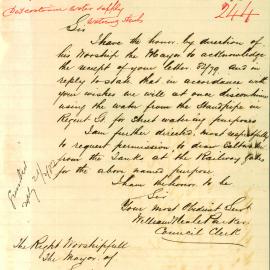 Discontinue water supply
244
watering streets
Sir
I have the honor by direction of
His Worship the Mayor to acknowledge
the receipt of your letter 82/79 and in
reply to state that in accordance with
your wishes we will at once discontinue
using the water from the Standpipe in
Regent St for street watering purposes
I am further directed, most respectfully
to request permission to draw
from the Tanks at the Railway Gates
for the above named purpose
I have the honor to be
Sir
Your most Obedient Servt
William
Council Clerk
The Right Worshipfull
The Mayor of